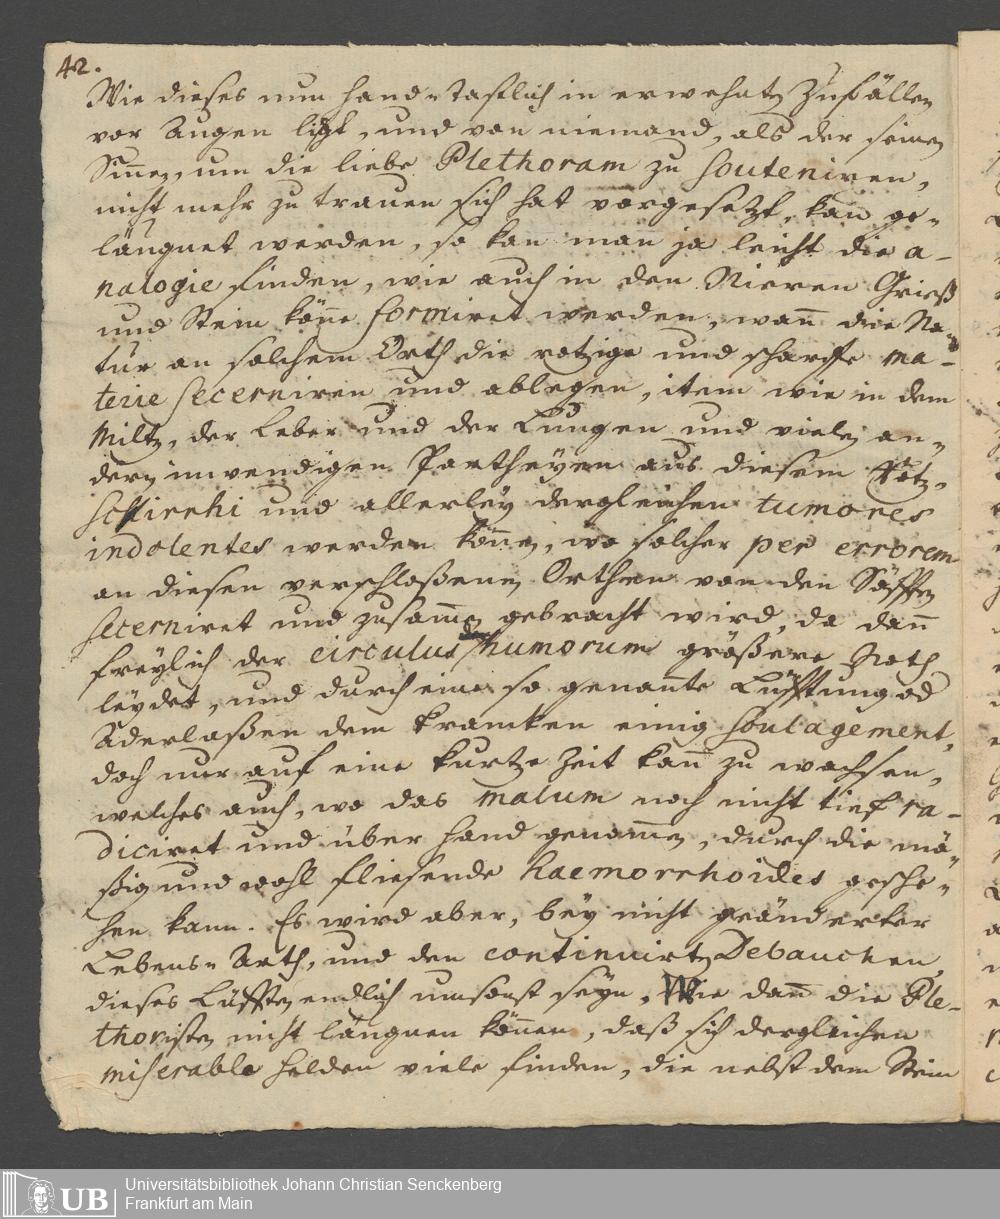 42.
Wie dieses nun hand-tastlich in erwehntē Zufällen
vor Augen ligt, und von niemand, als der seinē
Sin̄en, um die liebe Plethoram zu souteniren,
nicht mehr zu trauen sich hat vorgesetzt, kan̄ ge-
läugnet werden, so kan man ja leicht die a-
nalogie finden, wie auch in den Nieren Grieß
und Stein kön̄e formiret werden, wan̄ die Na-
tur an solchem Orth die rotzige und scharffe ma-
terie secerniren und ablegen, item wie in dem
Miltz, der Leber und der Lungen und vielē an-
dern inwendigen Partheyen aus diesem Rotz,
schirrhi und allerley dergleichen tumores
indolentes werden kön̄en, wo solcher per errorem
an diesen verschloßenen Orthen von den Säfften
secerniret und zusam̄en gebracht wird, da dan̄
freylich der circulus humorum größere Noth
leydet, und durch eine so genan̄te Lüfftung od
Aderlaßen dem krancken einig soulagement,
doch nur auf eine kurtze Zeit kan̄ zu wachsen,
welches auch, wo das malum noch nicht tief ra-
diciret und über hand genom̄en, durch die mä-
ßig und wohl fliesende haemorrhoides gesche-
hen kann. Es wird aber, bey nicht geänderter
Lebens-Arth, und den continuirtē Debauchen,
dieses Lüfften endlich umsonst seyn. Wie dan̄ die Ple-
thoristen nicht läugnen kön̄en, daß sich dergleichen
miserable helden viele finden, die nebst dem Stein
UB
Universitätsbibliothek Johann Christian Senckenberg
Frankfurt am Main